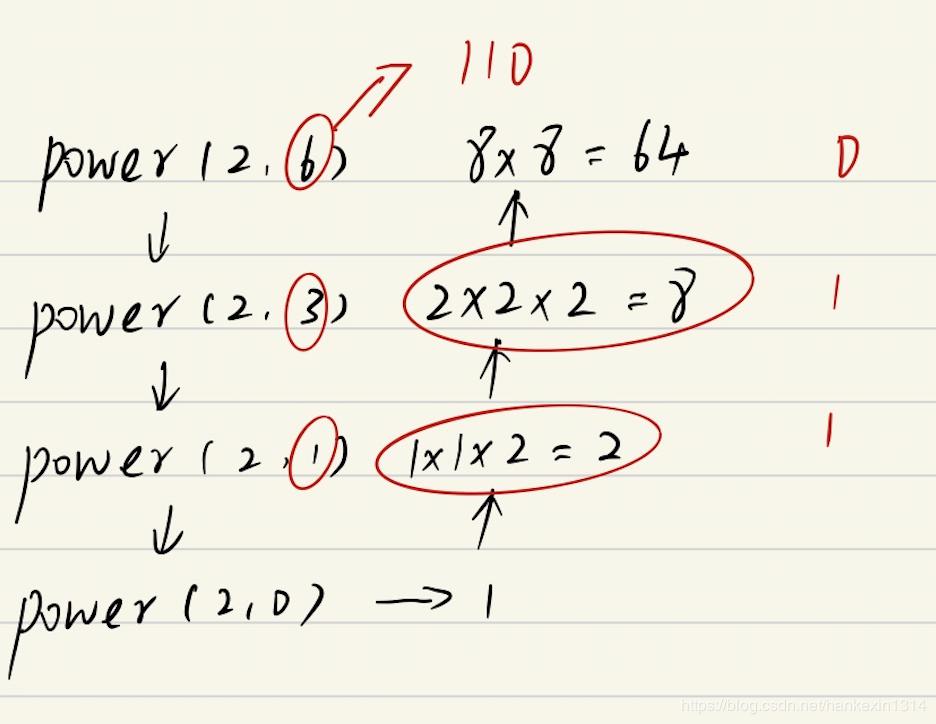 110
power(2,6) 8×8=64 0
↓ ↑
power(2,3) 2×2×2=8 1
↓ ↑
power(2,1) 1×1×2=2 1
↓ ↑
power(2,0) → 1
https://blog.csdn.net/hankexin1314